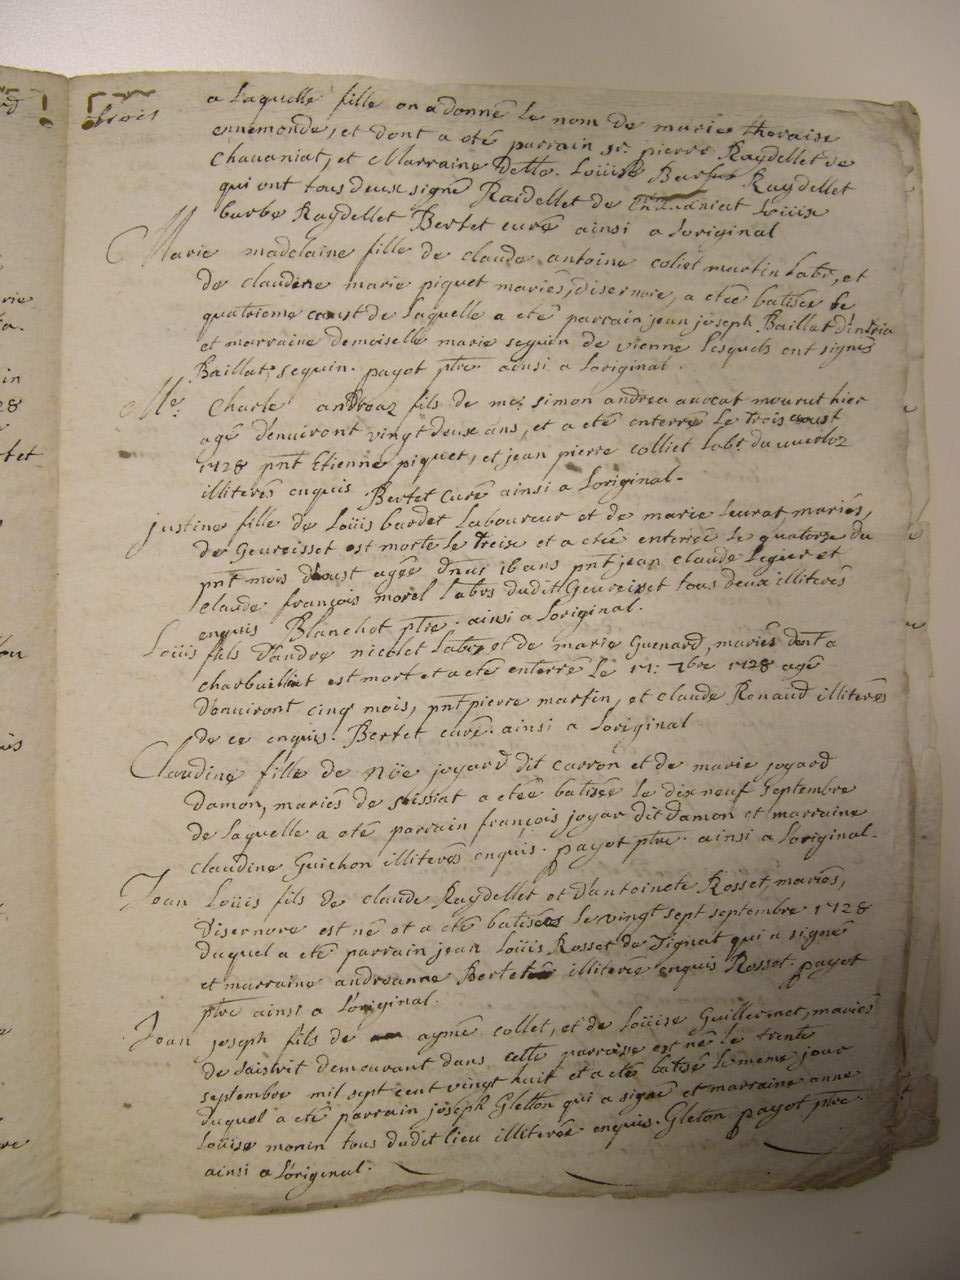 trois
a Laquelle fille on a donné Le nom de marie theraise
ennemonde, et dont a eté parrain sr. pierre Raydellet de
Chavaniat, et Marraine Delle. Loüise Barbe Raydellet
qui ont tous deux signé Raidellet de Chavaniat Loüise
barbe Raydellet Bertet curé ainsi a Loriginal
Marie madelaine fille de claude antoine coliet martin Labr, et
de claudine marie piquet mariés, disernore, a eteé batisée Le
quatrieme aoust de Laquelle a eté parrain jean joseph Baillat d'intria
et marraine demoiselle marie seguin de vienne Lesquels ont signés
Baillat, seguin. payot ptre ainsi a Loriginal.
Me. Charle andreaz fils de me. simon andrea avocat mourut hier
agé d'enuiront vingt deux ans, et a eté enterré Le trois aoust
1728 pnt Etienne piquet, et jean pierre colliet Labr. du
illiterés enquis Bertet curé ainsi a Loriginal.
justine fille de Loüis bardet Laboureur et de marie Leurat mariés,
de Geureisset est morte Le treize et a eteé enterrée Le quatorze du
pnt mois d'aoust agée 16 ans pnt jean claude Legier et
claude françois morel Labrs dudit Geureisset tous deux illiterés
enquis Blanchot ptre. ainsi a Loriginal.
Loüis fils d'andre nicolet Labr et de marie Guenard, mariés dont a
charbuilliat est mort et a eté enterré Le 17: 7bre 1728 agé
d'enuiront cinq mois, pnt pierre martin, et claude Renaud illiterés
de ce enquis. Bertet curé. ainsi a Loriginal
Claudine fille de Nöe joyard dit carron et de marie joyard
damon, mariés de sissiat a eteé batisée Le dix neuf septembre
de Laquelle a eté parrain françois joyar dit damon et marraine
claudine Guichon illiterés enquis. payot ptre. ainsi a Loriginal.
Jean Loüis fils de claude Raydellet et d'antoinete Rosset, mariés,
disernore est né et a eté batisé Le vingt sept septembre 1728
duquel a eté parrain jean Loüis Rosset de Tignat qui a signé
et marraine andreanne Bertet illiterée enquis Rosset. payot
ptre ainsi a L'original.
Jean joseph fils de aymé collet, et de Loüise Guillermet, mariés
de demeurant dans cette parroisse est né Le trente
septembre mil sept cent vingt huit et a eté batisé Le meme jour
duquel a eté parrain joseph Gletton qui a signé et marraine anne
Loüise monin tous dudit lieu illiterée enquis. Gleton payot ptre.
ainsi a L'original.